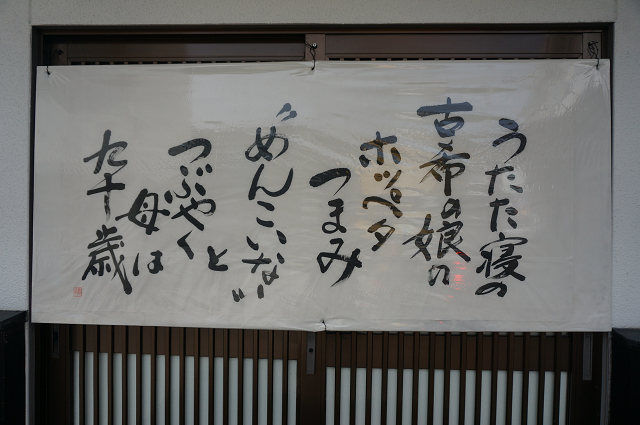 うたた寝の
古希の娘の
ホッペタ
つまみ
“めんこいな”
と
つぶやく
母は
九十歳